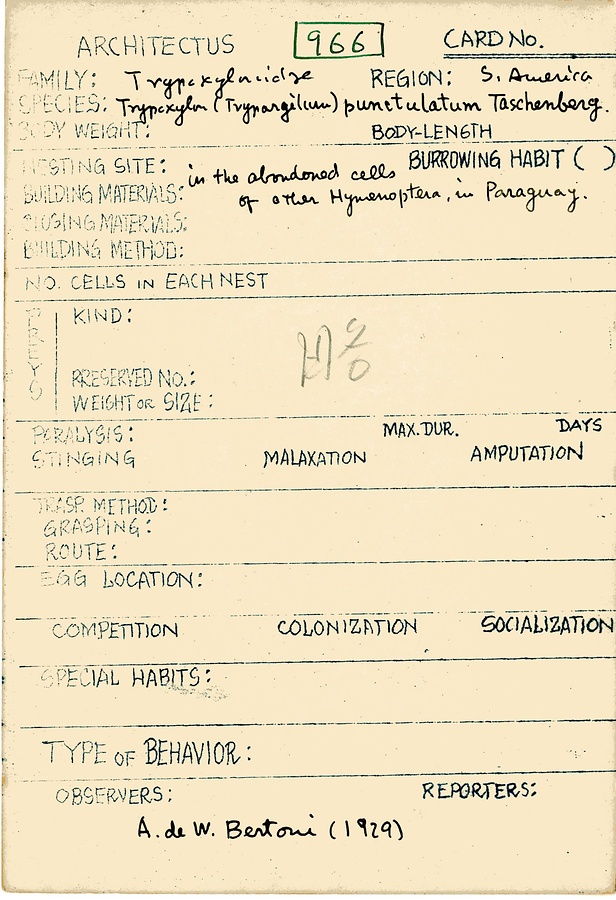 ARCHITECTUS 966 CARD No.
FAMILY: Trypoxylonidae REGION: S. America
SPECIES: Trypoxylon (Trypargilum) punctulatum Taschenberg.
BODY WEIGHT: BODY-LENGTH
NESTING SITE: in the abandoned cells BURROWING HABIT ( )
BUILDING MATERIALS: of other Hymenoptera, in Paraguay.
CLOSING MATERIALS:
BUILDING METHOD:
NO. CELLS IN EACH NEST
PREYS KIND:
PRESERVED NO.:
WEIGHT OR SIZE:
PARALYSIS: MAX. DUR. DAYS
STINGING MALAXATION AMPUTATION
TRASP. METHOD:
GRASPING:
ROUTE:
EGG LOCATION:
COMPETITION COLONIZATION SOCIALIZATION
SPECIAL HABITS:
TYPE OF BEHAVIOR:
OBSERVERS: REPORTERS:
A. de W. Bertoni (1929)